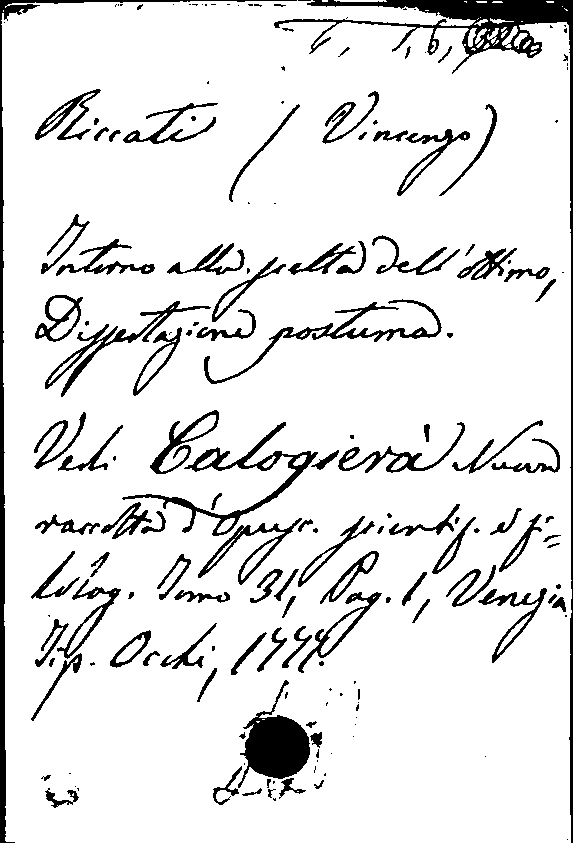 Riccati (Vincenzo)
Intorno alla scelta dell'ottimo,
Dissertazione postuma.
Vedi Calogierà Nuova
raccolta d'Opusc. scientif. e fi=
lolog. Tomo 31, Pag. 1, Venezia
Tip. Occhi, 1777.